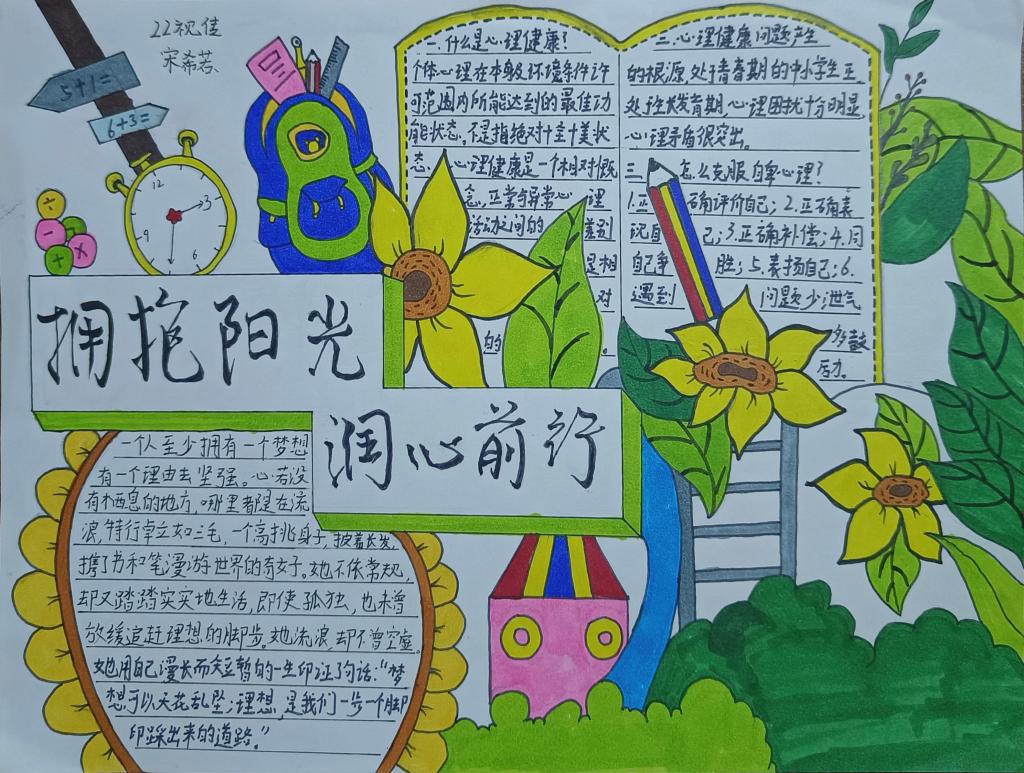 22视传
宋希若
5+1=
6+3=
12
3
6
9
÷
-
+
+
×
拥抱阳光
润心前行
一.什么是心理健康?
个体心理在本身及环境条件许
可范围内所能达到的最佳功
能状态,不是指绝对十全十美状
态.心理健康是一个相对概
念,正常与异常心理
活动之间的差别
是相
对
的。
二.心理健康问题产生
的根源 处于青春期的中小学生正
处在长发育期,心理困扰十分明显
心理矛盾很突出。
三、怎么克服自卑心理?
1.正确评价自己;2.正确表
现自己;3.正确补偿;4.同
自己争胜;5.表扬自己;6.
遇到问题少泄气
多鼓
励。
一个人至少拥有一个梦想
有一个理由去坚强。心若没
有栖息的地方,哪里都是在流
浪,特行卓立如三毛,一个高挑身子,披着长发,
携了书和笔漫游世界的奇女子。她不依常规,
却又踏踏实实地生活,即使孤独,也未曾
放缓追赶理想的脚步。她流浪,却不曾空虚。
她用自己漫长而短暂的一生印证了句话:“梦
想,可以天花乱坠;理想,是我们一步一个脚
印踩出来的道路。”